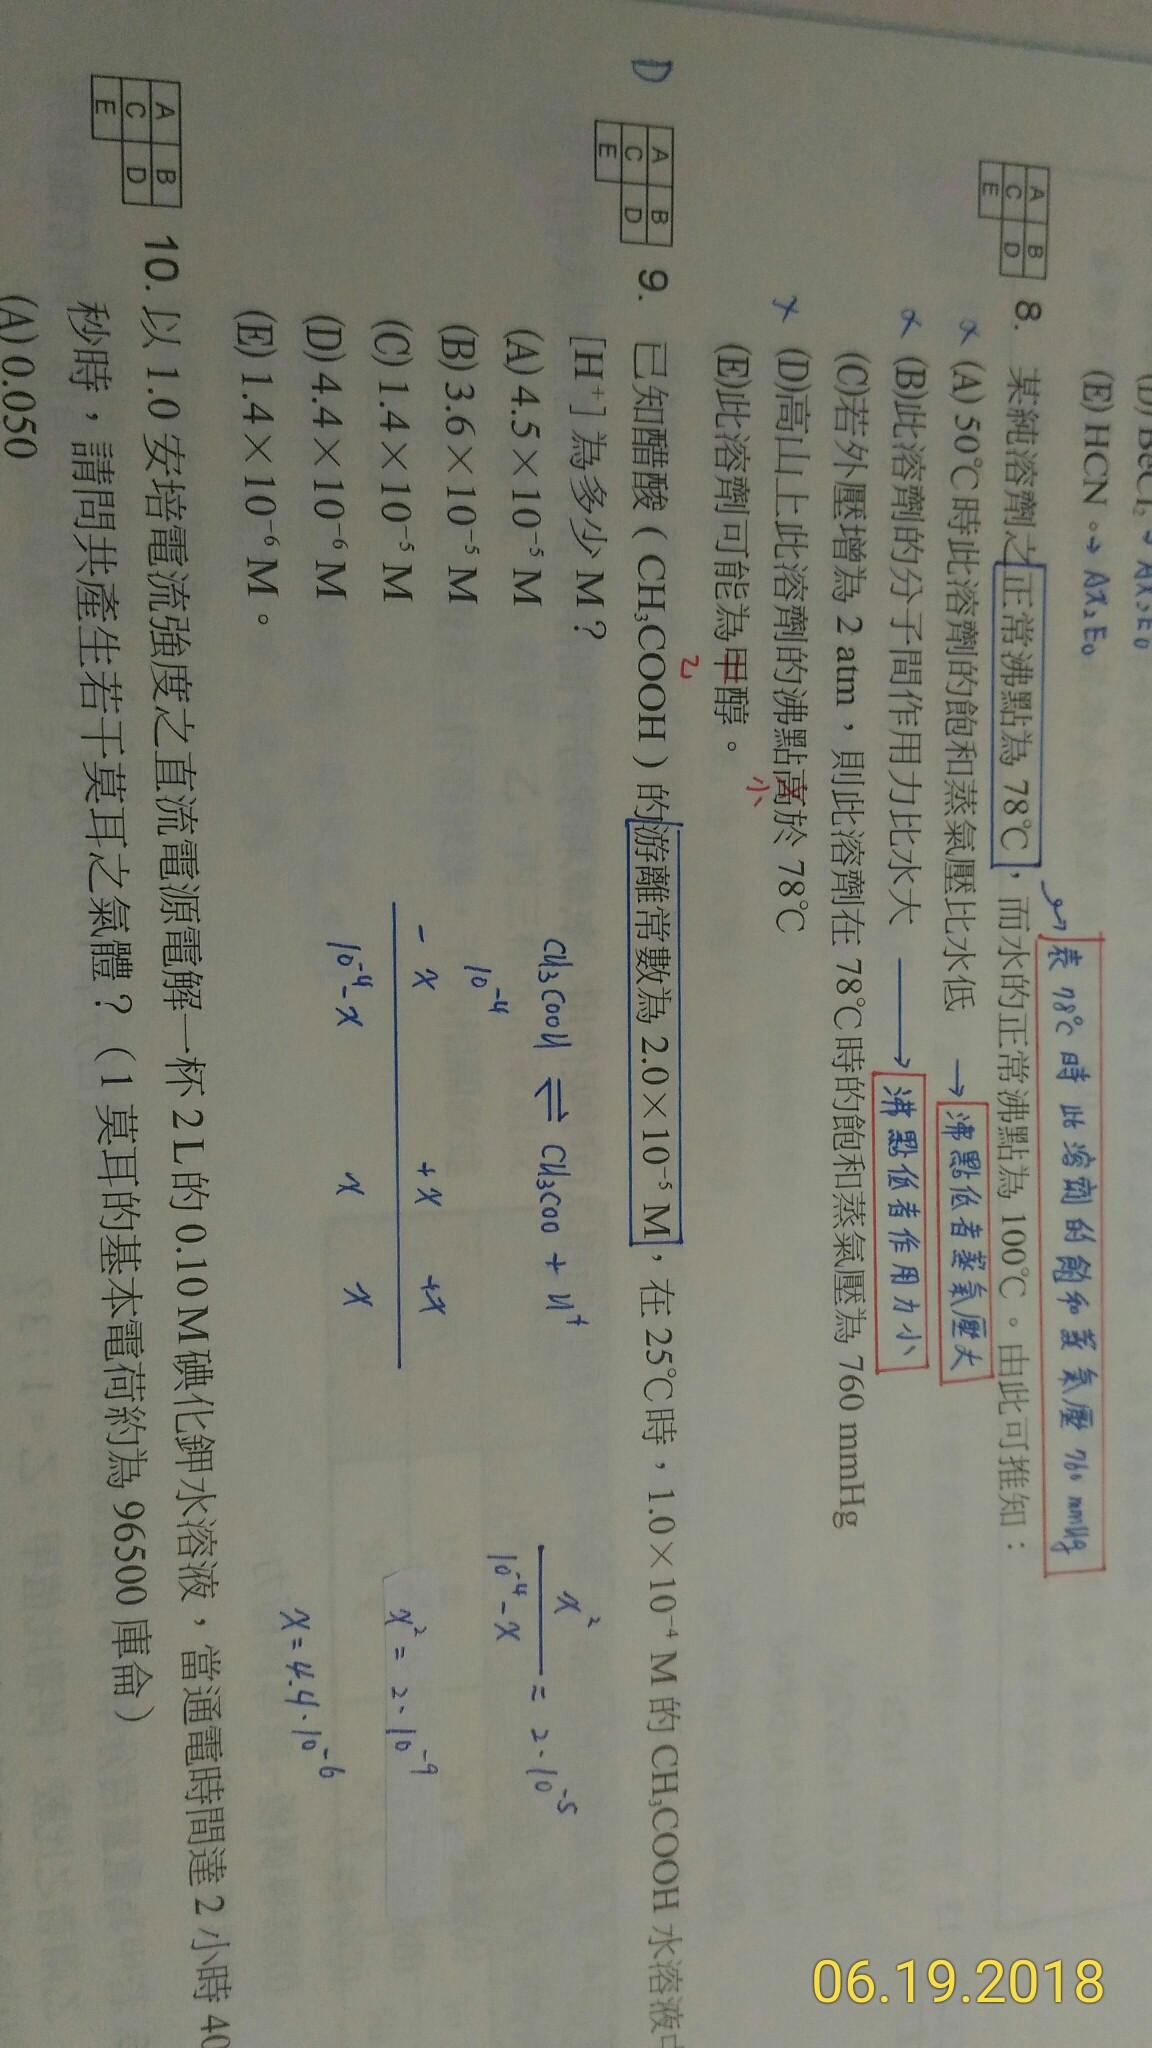 (D) BeCl₂ → AX₂E₀
(E) HCN。→ AX₂E₀
→ 表78℃時此溶劑的飽和蒸氣壓760 mmHg
A B C D E
8. 某純溶劑之正常沸點為 78℃，而水的正常沸點為 100℃。由此可推知：
× (A) 50℃時此溶劑的飽和蒸氣壓比水低 → 沸點低者蒸氣壓大
× (B)此溶劑的分子間作用力比水大 → 沸點低者作用力小
(C)若外壓增為 2 atm，則此溶劑在 78℃時的飽和蒸氣壓為 760 mmHg
× (D)高山上此溶劑的沸點高於 78℃
小
(E)此溶劑可能為甲醇。
乙
D
A B C D E
9. 已知醋酸（CH₃COOH）的游離常數為 2.0×10⁻⁵ M，在 25℃時，1.0×10⁻⁴ M 的 CH₃COOH 水溶液中
[H⁺] 為多少 M？
(A) 4.5×10⁻⁵ M
(B) 3.6×10⁻⁵ M
(C) 1.4×10⁻⁵ M
(D) 4.4×10⁻⁶ M
(E) 1.4×10⁻⁶ M。
CH₃COOH ⇌ CH₃COO + H⁺
10⁻⁴
-x +x +x
10⁻⁴-x x x
x²
10⁻⁴-x = 2·10⁻⁵
x² = 2·10⁻⁹
x = 4.4·10⁻⁶
A B C D E
10. 以 1.0 安培電流強度之直流電源電解一杯 2 L 的 0.10 M 碘化鉀水溶液，當通電時間達 2 小時 40
秒時，請問共產生若干莫耳之氣體？（1 莫耳的基本電荷約為 96500 庫侖）
(A) 0.050
06.19.2018